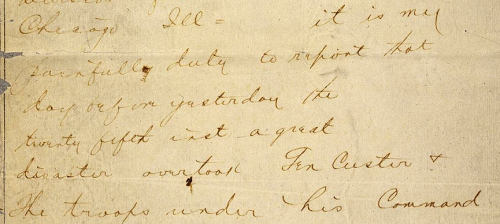 Chicago Ill = it is my
painfull duty to report that
day before yesterday the
twenty fifth inst a great
disaster overtook Gen Custer &
the troops under his Command